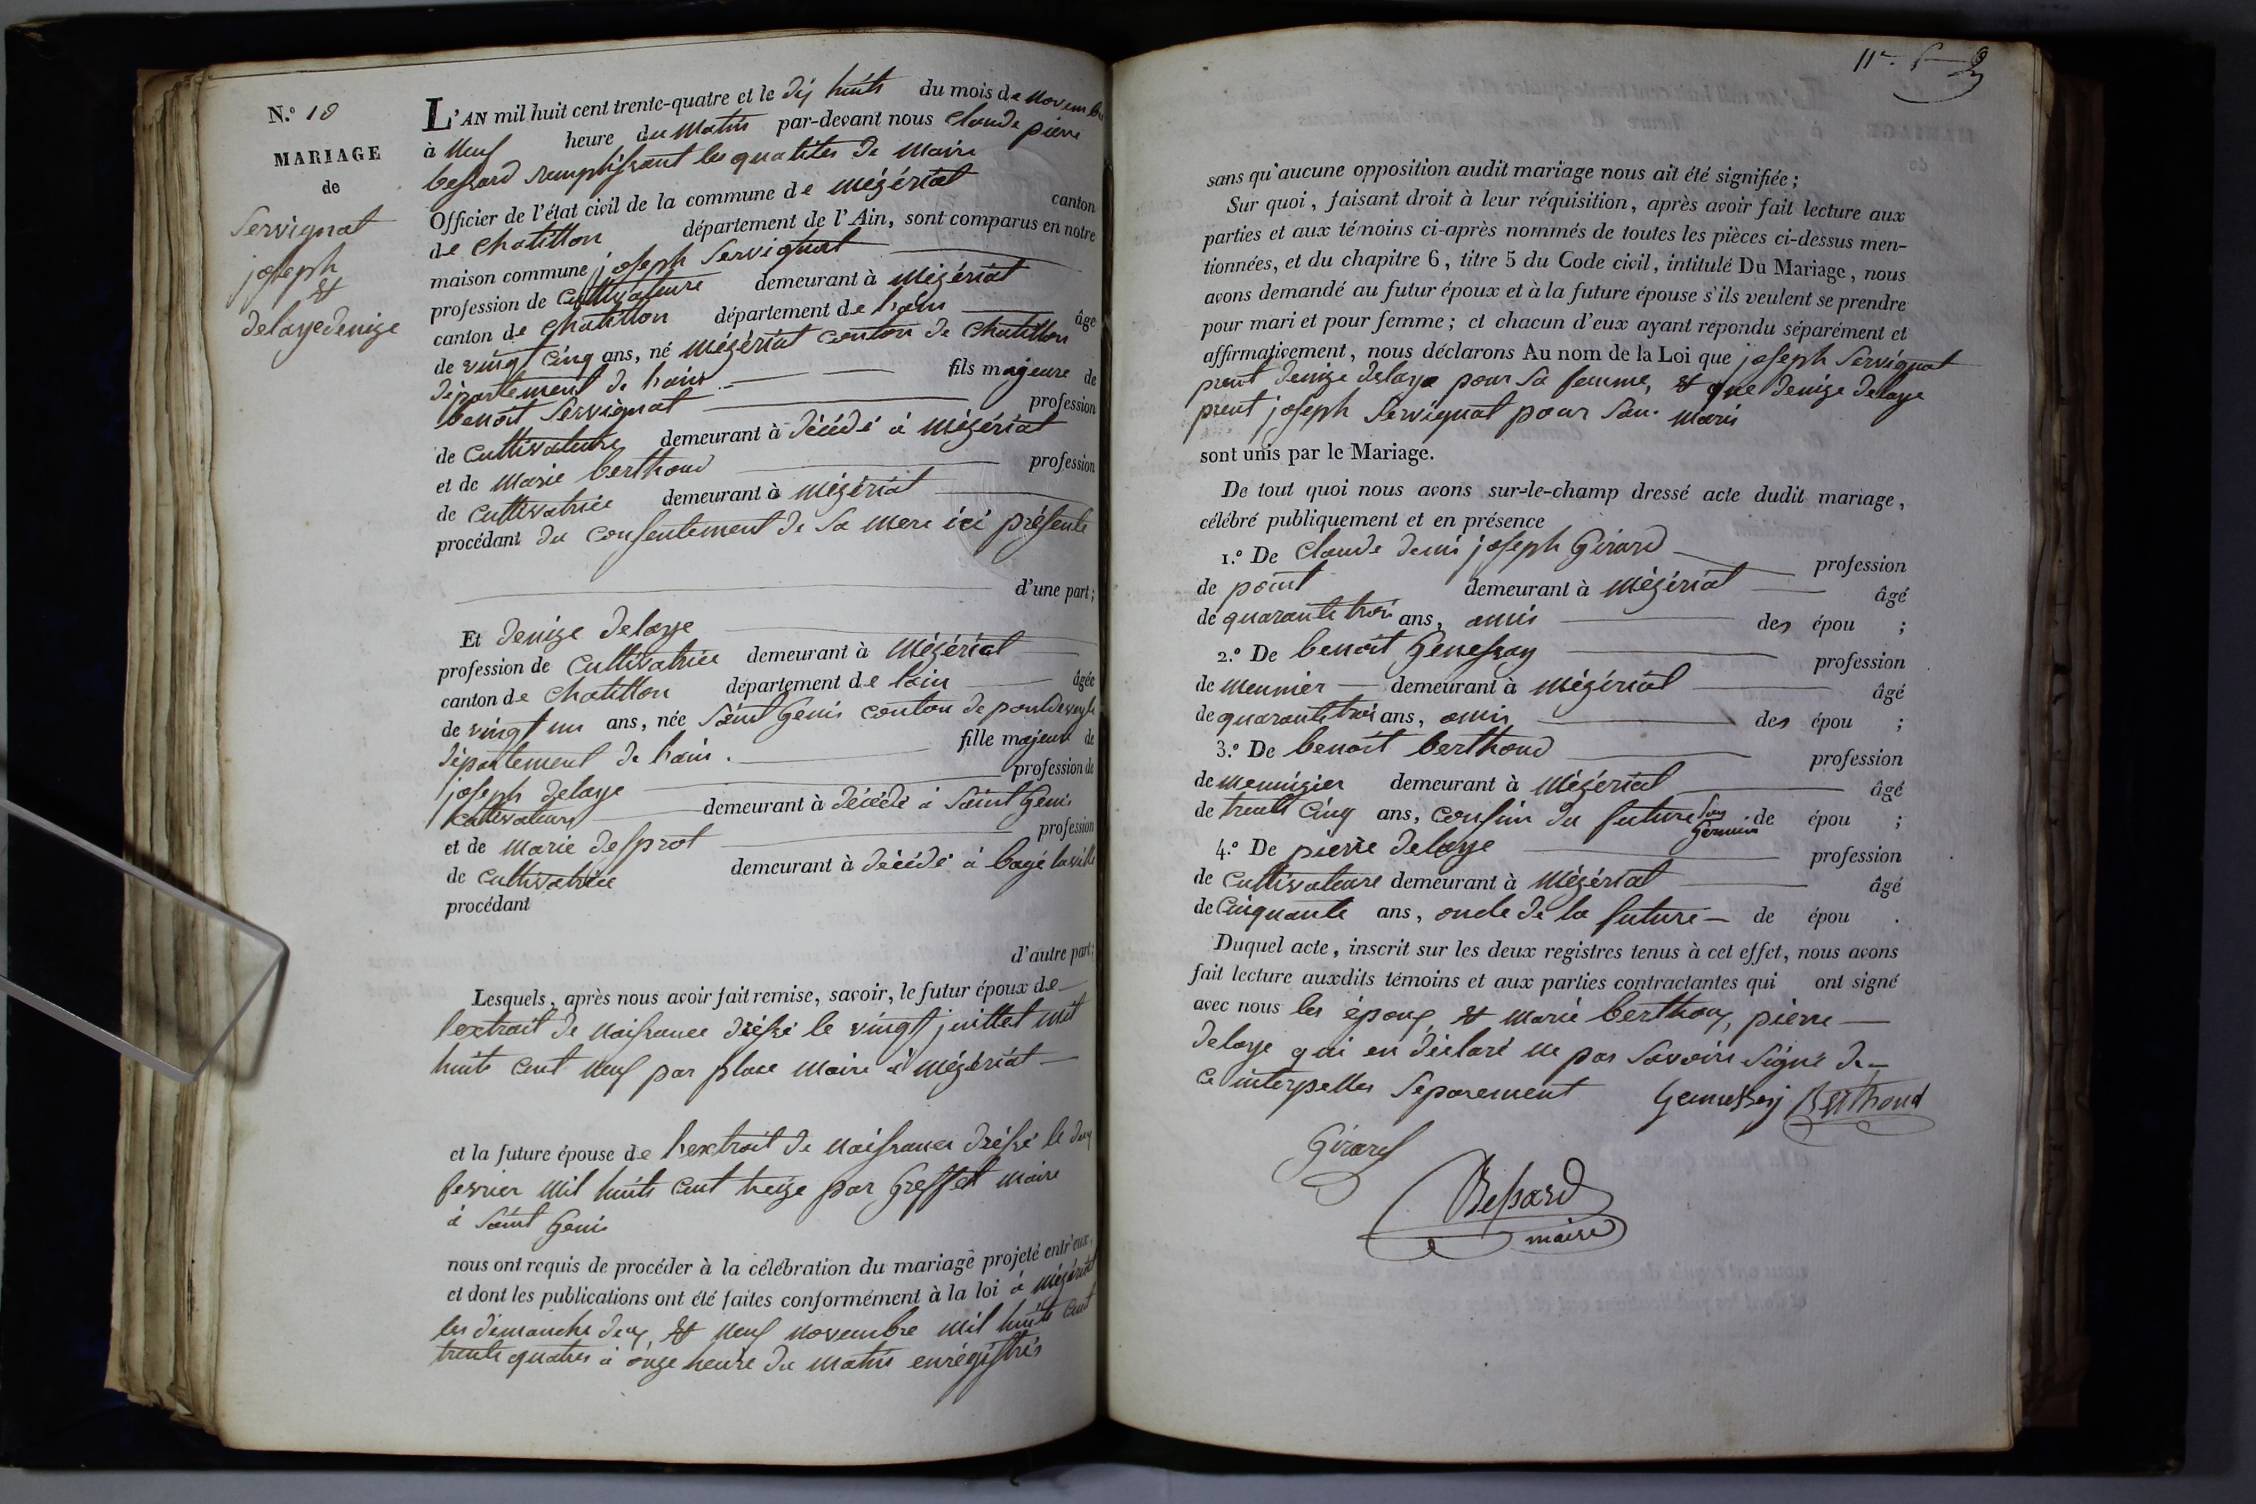 N.º 18
MARIAGE
de
Servignat
joseph
et
delaye denize
L'AN mil huit cent trente-quatre et le dix huits du mois de novembre
à neuf heure du matin par-devant nous claude pierre
bessard remplissant les qualités de maire
Officier de l'état civil de la commune de mézériat canton
de chatillon département de l'Ain, sont comparus en notre
maison commune joseph Servignat
profession de cultivateure demeurant à mézériat
canton de chatillon département de l'ain âgé
de vingt cinq ans, né mézériat conton de chatillon
département de l'ain fils majeure de
benoit Servignat profession
de cultivateure demeurant à décédé à mézériat
et de marie berthoud profession
de cultivatrice demeurant à mézériat
procédant du consentement de sa mere ici présente
d'une part;
Et denize delaye
profession de cultivatrice demeurant à mézériat
canton de chatillon département de l'ain âgée
de vingt un ans, née Saint Genis conton de pontdeveyle
département de l'ain. fille majeure de
joseph delaye profession de
cultivateure demeurant à décédé à Saint Genis
et de marie desprot profession
de cultivatrice demeurant à décédé à bagé laville
procédant
d'autre part;
Lesquels, après nous avoir fait remise, savoir, le futur époux de
l'extrait de naissance dréssé le vingt juillet mil
huits cent neuf par place maire à mézériat
et la future épouse de l'extrait de naissance dréssé le deux
fevrier mil huits cent treize par Greffet maire
à Saint Genis
nous ont requis de procéder à la célébration du mariage projeté entr'eux,
et dont les publications ont été faites conformément à la loi à mézériat
les dimanche deux et neuf novembre mil huits cent
trente quatres à onze heure du matin enrégistrés
sans qu'aucune opposition audit mariage nous ait été signifiée;
Sur quoi, faisant droit à leur réquisition, après avoir fait lecture aux
parties et aux témoins ci-après nommés de toutes les pièces ci-dessus men-
tionnées, et du chapitre 6, titre 5 du Code civil, intitulé Du Mariage, nous
avons demandé au futur époux et à la future épouse s'ils veulent se prendre
pour mari et pour femme; et chacun d'eux ayant répondu séparément et
affirmativement, nous déclarons Au nom de la Loi que joseph Servignat
prent denize delaye pour sa femme, et que denize delaye
prent joseph Servignat pour son maris
sont unis par le Mariage.
De tout quoi nous avons sur-le-champ dressé acte dudit mariage,
célébré publiquement et en présence
1.º De claude denis joseph Girard profession
de point demeurant à mézériat âgé
de quarante trois ans, amis des épou ;
2.º De benoit Genessay profession
de meunier demeurant à mézériat âgé
de quarante trois ans, amis des épou ;
3.º De benoit berthoud profession
de mennigier demeurant à mézériat âgé
de trente cinq ans, confin du future Son Germain de épou ;
4.º De pierre delaye profession
de cultivateure demeurant à mézériat âgé
de cinquante ans, oncle de la future de épou .
Duquel acte, inscrit sur les deux registres tenus à cet effet, nous avons
fait lecture auxdits témoins et aux parties contractantes qui ont signé
avec nous les époux et marie berthoux, pierre
delaye qui en déclaré ne pas savoir signé de
ce interpelles Séparement Gennessey Berthoud
Girard
Bessard
maire